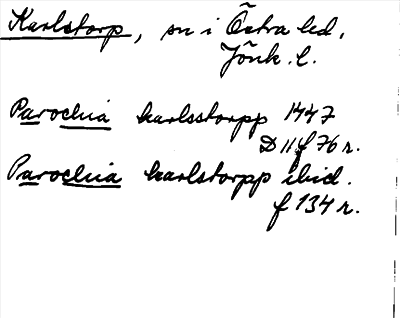 Karlstorp, sn i Östra hd,
Jönk. l.
Parochia karlsstorpp 1447
D 11 f 76 r.
Parochia karlstorpp ibid.
f 134 r.